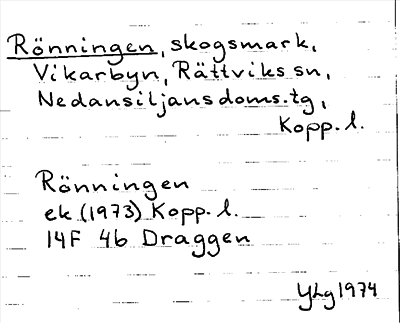 Rönningen, skogsmark,
Vikarbyn, Rättviks sn,
Nedansiljans doms.tg,
Kopp. l.
Rönningen
ek (1973) Kopp. l.
14F 4b Draggen
YLg 1974